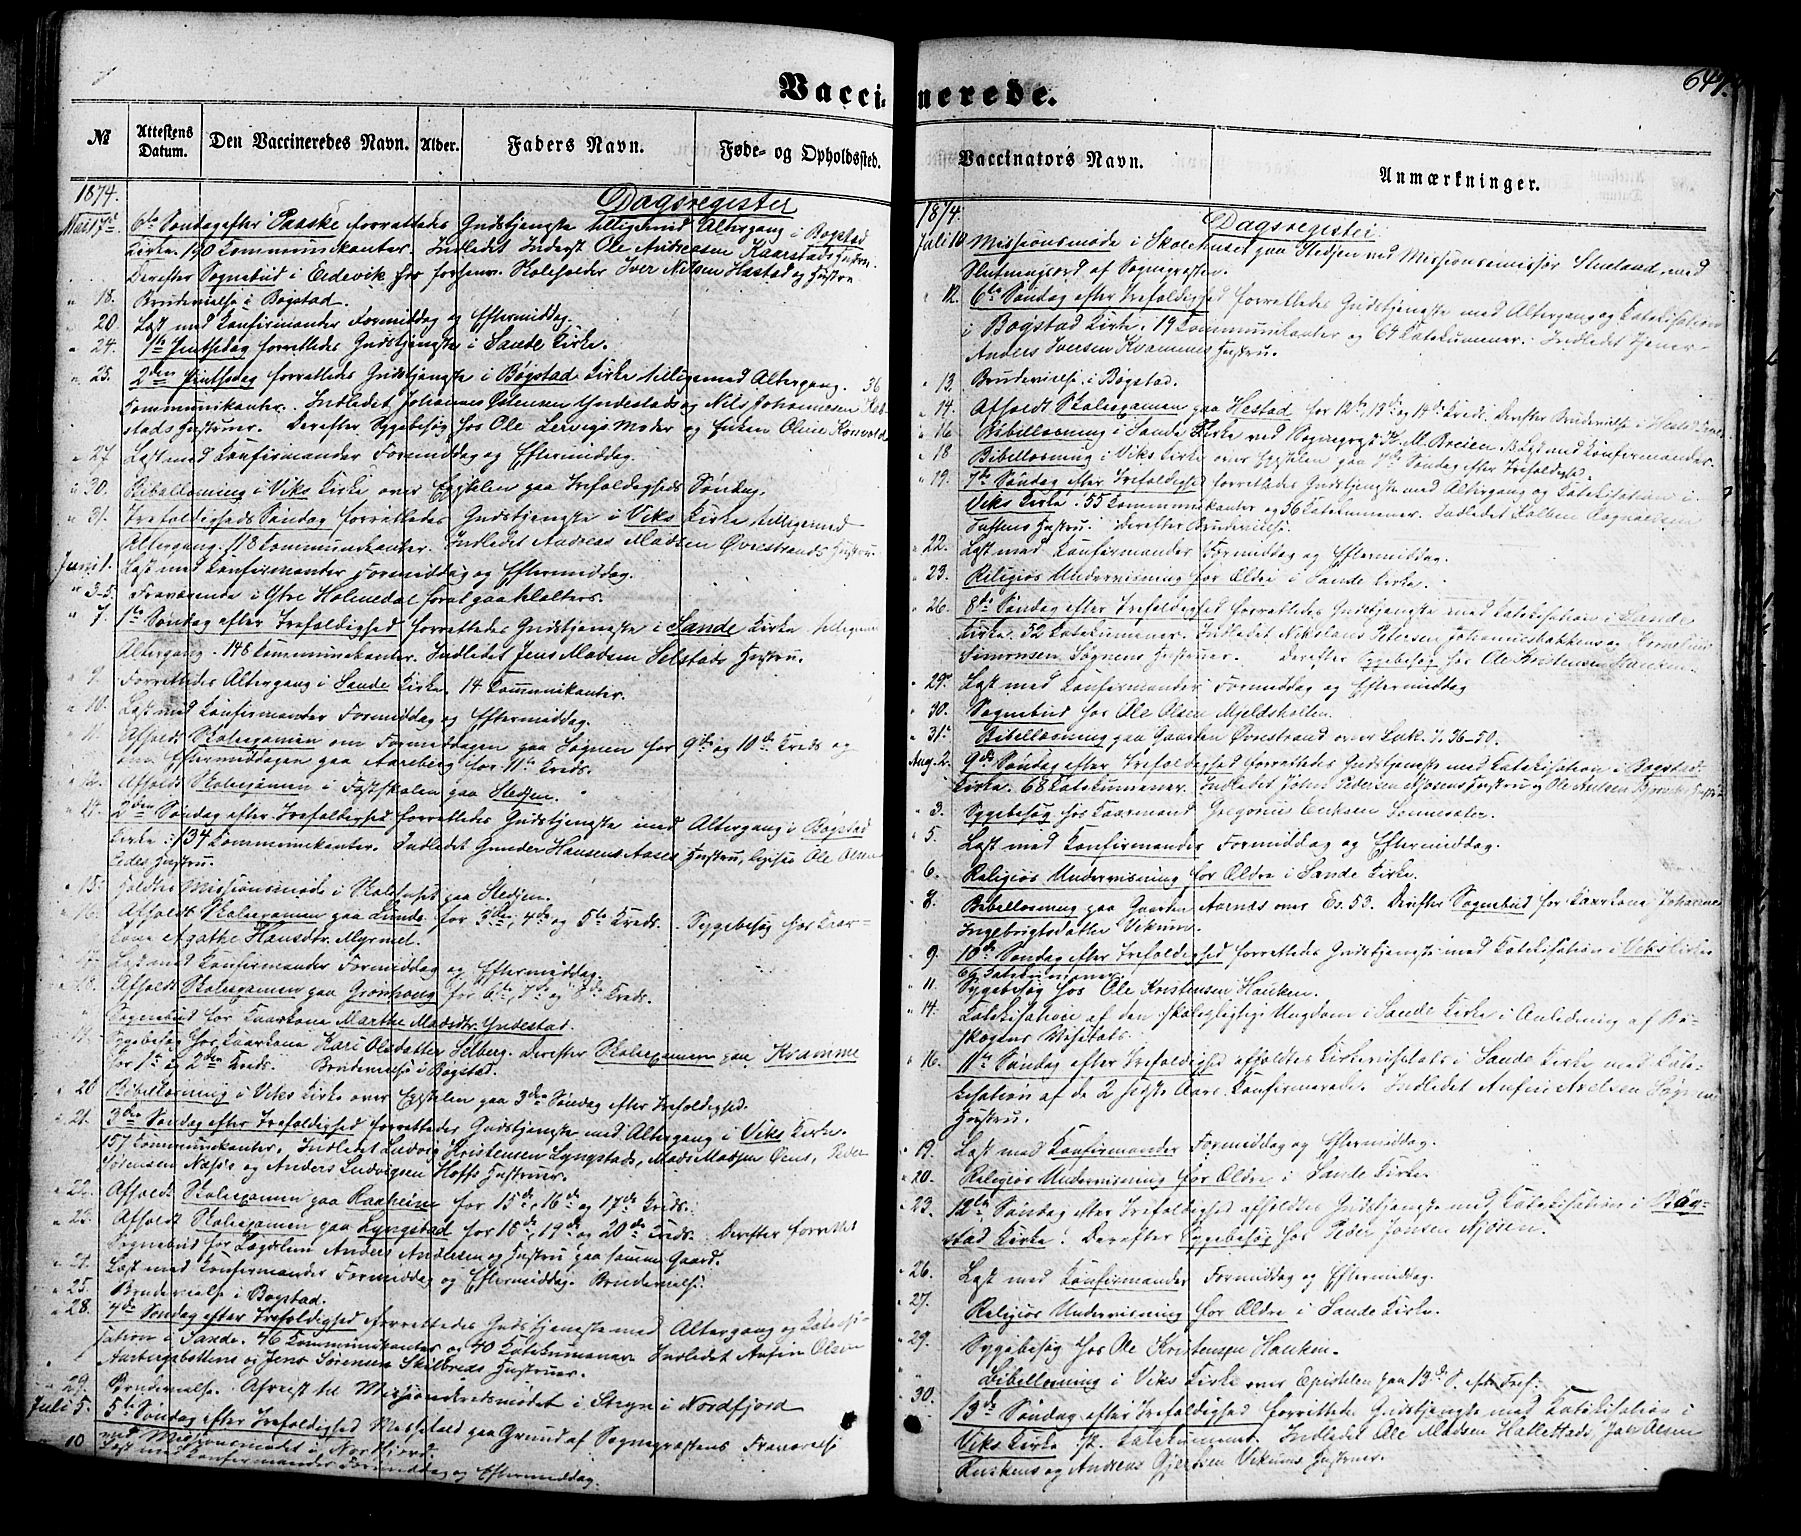 Vaccinerede.
649.
№ Attestens Datum. Den Vaccineredes Navn. Alder. Faders Navn. Føde- og Opholdssted.
1874. Dagsregister
6te Søndag efter Paaske forrettedes Gudstjeneste tilligemed Altergang i Bøgstad
Kirke. 190 Kommunikanter. Indledet Inderst Ole Andreasen Kaarstads
Derefter Sognebud i Eldevik hos forhenv. Skoleholder Iver Nilsen Hastad og Hustru
" 18. Brudevielse i Bøgstad.
" 20 Læst med Konfirmander Formiddag og Eftermiddag.
" 24. 1ste Pintsedag forrettedes Gudstjeneste i Sande Kirke.
" 25. 2den Pintsedag forrettedes Gudstjeneste i Bøgstad Kirke tilligemed Altergang. 36
Kommunikanter. Indledet Johannes Østensen Yndestads og Nils Johannesen
stads Hustruer. Derefter Sygebesøg hos Ole Lervigs Moder og Enken Oline
" 27 Læst med Konfirmander Formiddag og Eftermiddag.
" 30. Bibellæsning i Viks Kirke over Epistelen paa Trefoldigheds Søndag.
" 31. Trefoldigheds Søndag forrettedes Gudstjeneste i Viks Kirke tilligemed
Altergang. 118 Kommunikanter. Indledet Andreas Madsen Øvrestrands Hustru.
Juni 1. Læst med Konfirmander Formiddag og Eftermiddag.
" 3-5. Fraværende i Ytre Holmedal
" 7. 1ste Søndag efter Trefoldighed forrettedes Gudstjeneste i Sande Kirke tilligemed
Altergang. 148 Kommunikanter. Indledet Jens Madsen Selstads Hustru.
" 9. Forrettedes Altergang i Sande Kirke. 14 Kommunikanter.
" 10. Læst med Konfirmander Formiddag og Eftermiddag.
" 11. Afholdt Skoleexamen om Formiddagen paa Søgnen for 9de og 10de Kreds og
om Eftermiddagen paa Aareberg for 11te Kreds.
" 12. Afholdt Skoleexamen i Fastskolen paa Stedjen.
" 14. 2den Søndag efter Trefoldighed forrettedes Gudstjeneste med Altergang i Bøgstad
Kirke. 134 Kommunikanter. Indledet Gunder Hansens Aases Hustru, Ole Olsen
Hustru.
" 15. Holdtes Missionsmøde i Skolehuset paa Stedjen.
" 16. Afholdt Skoleexamen paa Lunde for 3die, 4de og 5te Kreds. Sygebesøg hos Kaar-
kone Agathe Hansdtr. Myrmel.
" 17. Læst med Konfirmander Formiddag og Eftermiddag.
" 18. Afholdt Skoleexamen paa Grimhoug for 6te, 7de og 8de Kreds.
" Sognebud for Kaarkone Marthe Madsdtr. Yndestad.
" 19. Sygebesøg hos Kaarkone Kari Olsdatter Selberg. Derefter Skoleexamen paa Kvamme
for 1ste og 2den Kreds. Brudevielse i Bøgstad.
" 20 Bibellæsning i Viks Kirke over Epistelen paa 3die Søndag efter Trefoldighed.
" 21. 3die Søndag efter Trefoldighed forrettedes Gudstjeneste med Altergang i Viks Kirke.
157 Kommunikanter. Indledet Ludvig Kristensen Lyngstads, Mads Madsen Øens, Peder
Sørensen Næss og Anders Ludvigsen Hoffs Hustruer.
" 22. Afholdt Skoleexamen paa Raaheim for 15de, 16de og 17de Kreds.
" 23. Afholdt Skoleexamen paa Lyngstad for 18de, 19de og 20de Kreds. Derefter forrettet
Sognebud for Lægdslem Anders Andersen og Hustru paa samme Gaard.
" 24. Læst med Konfirmander Formiddag og Eftermiddag. Brudevielse.
" 25. Brudevielse i Bøgstad.
" 28. 4de Søndag efter Trefoldighed forrettedes Gudstjeneste med Altergang og Kateki-
sation i Sande. 46 Kommunikanter og 40 Katekumener. Indledet Anfin Olsen
og Jens Sørensen Skilbreds Hustruer.
" 29. Brudevielse. Afreist til Missionskredsmødet i Stryn i Nordfjord
Juli 5. 5te Søndag efter Trefoldighed Messefald paa Grund af Sognepræstens Fraværelse
ved Missionsmødet i Nordfjord
" 10 Læst med Konfirmander Formiddag og Eftermiddag.
Vaccinators Navn. Anmærkninger.
1874. Dagsregister.
Juli 10 Missionsmøde i Skolehuset paa Stedjen ved Missionsemissær med
Slutningsord af Sognepræsten.
" 12. 6te Søndag efter Trefoldighed forrettedes Gudstjeneste med Altergang og Katekisation
i Bøgstad Kirke. 19 Kommunikanter og 64 Katekumener. Indledet
Anders Iversen Kvammes Hustru.
" 13. Brudevielse i Bøgstad.
" 14. Afholdt Skoleexamen paa Hestad for 12te, 13de og 14de Kreds. Derefter Brudevielse i Hestad
" 16 Bibellæsning i Sande Kirke ved Sognepræst M. Breien. Læst med Konfirmander.
" 18 Bibellæsning i Viks Kirke over Epistelen paa 7de Søndag efter Trefoldighed.
" 19. 7de Søndag efter Trefoldighed forrettedes Gudstjeneste med Altergang og Katekisation i
Viks Kirke. 55 Kommunikanter og 36 Katekumener. Indledet
Hustru. Derefter Brudevielse.
" 22. Læst med Konfirmander Formiddag og Eftermiddag.
" 23. Religiøs Undervisning for Ældre i Sande Kirke.
" 26. 8de Søndag efter Trefoldighed forrettedes Gudstjeneste med Katekisation i Sande
Kirke. 52 Katekumener. Indledet Nikolaus Petersen Johannisbakkens og Kornelius
Simonsen Søgnens Hustruer. Derefter Sygebesøg hos Ole Kristensen Hauken.
" 29. Læst med Konfirmander Formiddag og Eftermiddag
" 30. Sognebud hos Ole Olsen Mjeldsholten.
" 31te Bibellæsning paa Gaarden Øvrestrand over Luk. 7. 36-50.
Aug. 2. 9de Søndag efter Trefoldighed forrettedes Gudstjeneste med Katekisation i Bøgstad
Kirke. 68 Katekumener. Indledet Johan Pedersen Hustru og Ole
" 3. Sygebesøg hos Kaarmand Gregorius Eriksen Sonnesæter.
" 5. Læst med Konfirmander Formiddag og Eftermiddag.
" 6. Religiøs Undervisning for Ældre i Sande Kirke.
" 8. Bibellæsning paa Gaarden Aarnæs over Es. 53. Derefter Sognebud for Kaarkone Johanne
Ingebrigtsdatter Vikum.
" 9. 10de Søndag efter Trefoldighed forrettedes Gudstjeneste med Katekisation i Viks Kirke
66 Katekumener.
" 11. Sygebesøg hos Ole Kristensen Hauken.
" 14. Katekisation af den skolepligtige Ungdom i Sande Kirke i Anledning af Bi-
skopens Visitats.
" 16. 11te Søndag efter Trefoldighed afholdtes Kirkevisitats i Sande Kirke med Kate-
kisation af de 2 sidste Aars Konfirmerede. Indledet Anfin Axelsen Søgnens
Hustru.
" 19. Læst med Konfirmander Formiddag og Eftermiddag.
" 20. Religiøs Undervisning for Ældre i Sande Kirke.
" 23. 12te Søndag efter Trefoldighed afholdtes Gudstjeneste med Katekisation i Bøg-
stad Kirke. Derefter Sygebesøg hos Peder Jonsen Mjøsen.
" 26. Læst med Konfirmander Formiddag og Eftermiddag.
" 27. Religiøs Undervisning for Ældre i Sande Kirke.
" 29. Sygebesøg hos Ole Kristensen Hauken.
" Bibellæsning i Viks Kirke over Epistelen paa 13de S. efter Tref:
" 30. 13de Søndag efter Trefoldighed forrettedes Gudstjeneste med Katekisation i
Viks Kirke. Katekumener. Indledet Ole Madsen Hallestads, Olsen
og Andreas Vikums Hustruer.